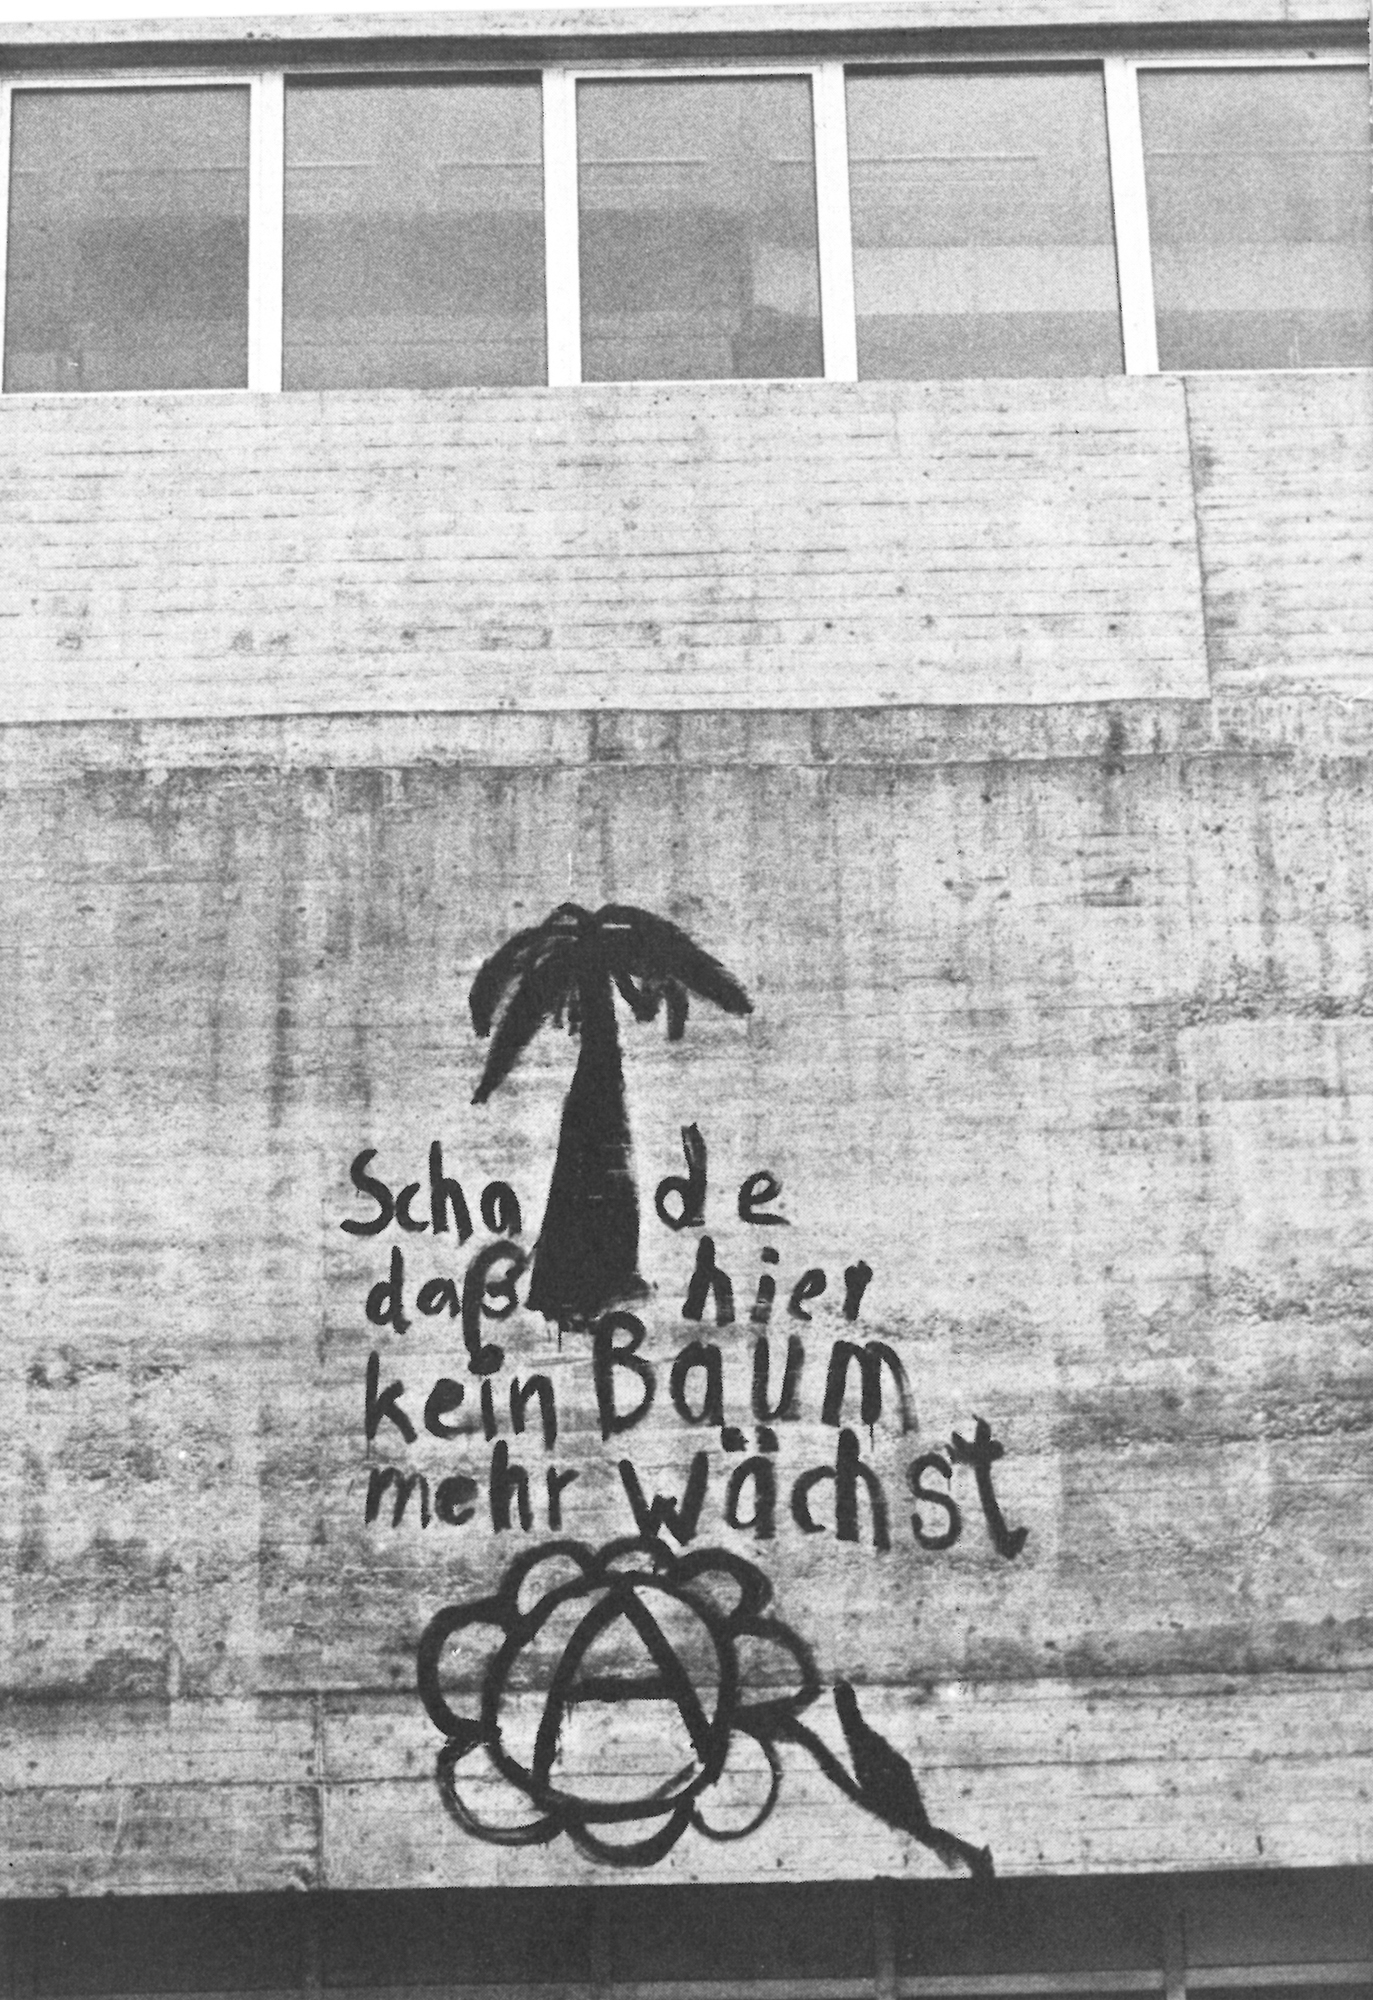 Schade
daß hier
kein Baum
mehr wächst
A